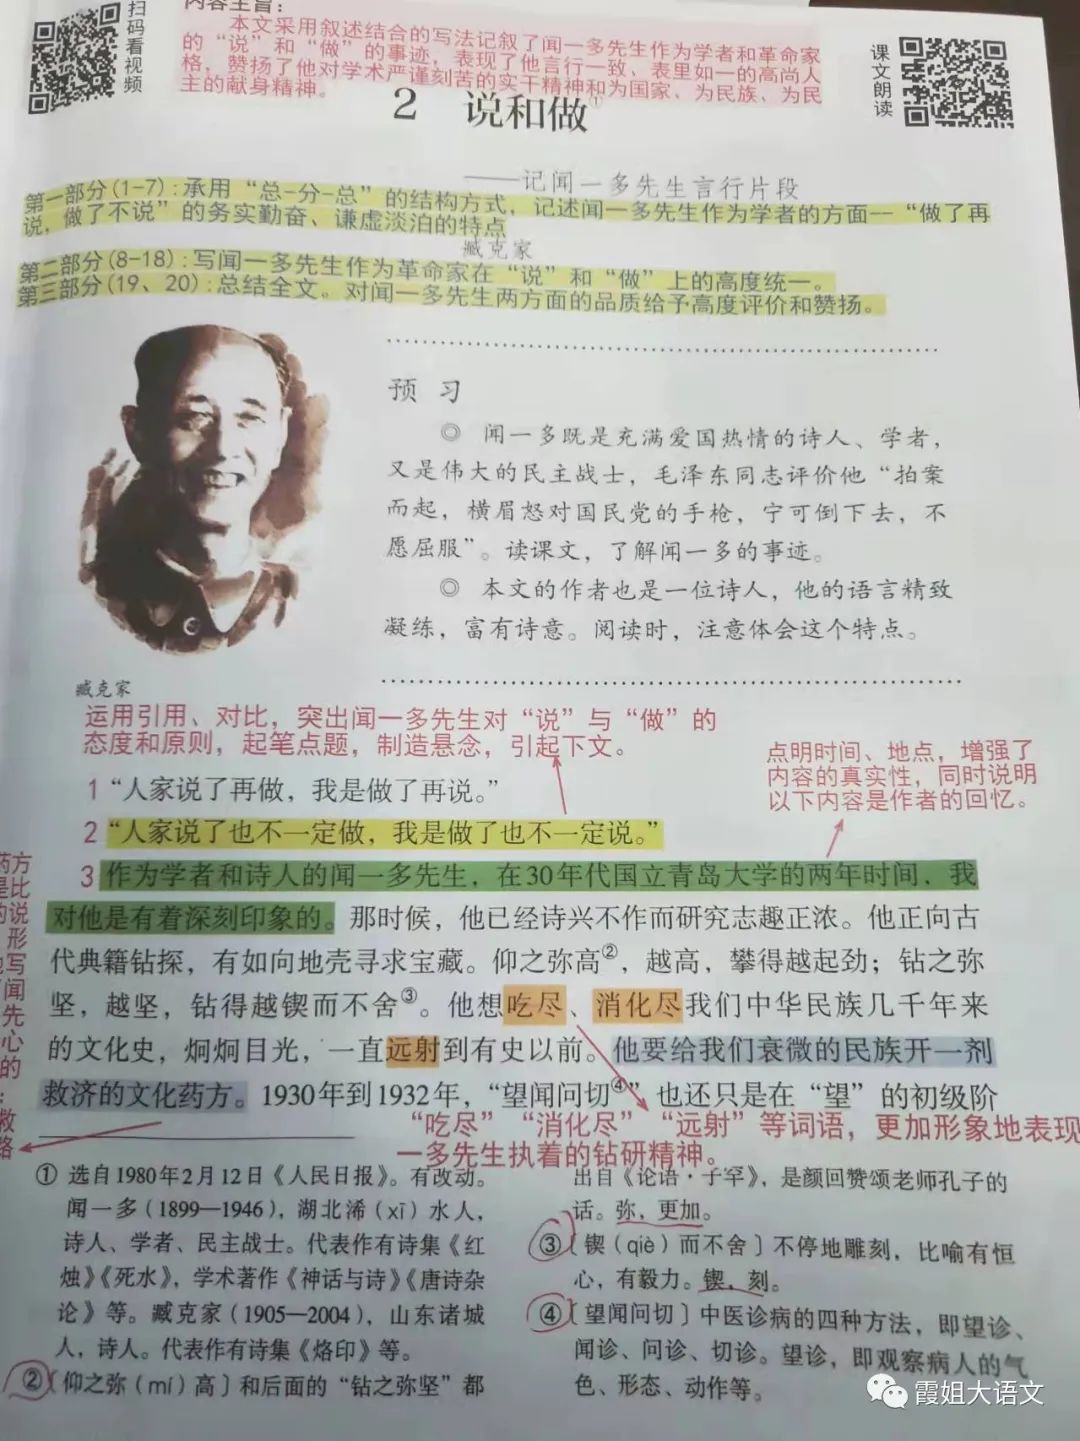 扫码看视频
内容主旨：
本文采用叙述结合的写法记叙了闻一多先生作为学者和革命家
的“说”和“做”的事迹，表现了他言行一致、表里如一的高尚人
格，赞扬了他对学术严谨刻苦的实干精神和为国家、为民族、为民
主的献身精神。
课文朗读
2 说和做①
——记闻一多先生言行片段
第一部分(1-7)：承用“总-分-总”的结构方式，记述闻一多先生作为学者的方面--“做了再
说，做了不说”的务实勤奋、谦虚淡泊的特点
臧克家
第二部分(8-18)：写闻一多先生作为革命家在“说”和“做”上的高度统一。
第三部分(19、20)：总结全文。对闻一多先生两方面的品质给予高度评价和赞扬。
预 习
◎ 闻一多既是充满爱国热情的诗人、学者，
又是伟大的民主战士，毛泽东同志评价他“拍案
而起，横眉怒对国民党的手枪，宁可倒下去，不
愿屈服”。读课文，了解闻一多的事迹。
◎ 本文的作者也是一位诗人，他的语言精致
凝练，富有诗意。阅读时，注意体会这个特点。
臧克家
运用引用、对比，突出闻一多先生对“说”与“做”的
态度和原则，起笔点题，制造悬念，引起下文。
点明时间、地点，增强了
内容的真实性，同时说明
以下内容是作者的回忆。
1 “人家说了再做，我是做了再说。”
2 “人家说了也不一定做，我是做了也不一定说。”
3 作为学者和诗人的闻一多先生，在30年代国立青岛大学的两年时间，我
对他是有着深刻印象的。那时候，他已经诗兴不作而研究志趣正浓。他正向古
代典籍钻探，有如向地壳寻求宝藏。仰之弥高②，越高，攀得越起劲；钻之弥
坚，越坚，钻得越锲而不舍③。他想吃尽、消化尽我们中华民族几千年来
的文化史，炯炯目光，一直远射到有史以前。他要给我们衰微的民族开一剂
救济的文化药方。1930年到1932年，“望闻问切④”也还只是在“望”的初级阶
药方
是比
的说
形
写
闻
先
心
的
：
救
路
“吃尽”“消化尽”“远射”等词语，更加形象地表现
一多先生执着的钻研精神。
① 选自1980年2月12日《人民日报》。有改动。
闻一多（1899—1946），湖北浠（xī）水人，
诗人、学者、民主战士。代表作有诗集《红
烛》《死水》，学术著作《神话与诗》《唐诗杂
论》等。臧克家（1905—2004），山东诸城
人，诗人。代表作有诗集《烙印》等。
②〔仰之弥（mí）高〕和后面的“钻之弥坚”都
出自《论语·子罕》，是颜回赞颂老师孔子的
话。弥，更加。
③〔锲（qiè）而不舍〕不停地雕刻，比喻有恒
心，有毅力。锲，刻。
④〔望闻问切〕中医诊病的四种方法，即望诊、
闻诊、问诊、切诊。望诊，即观察病人的气
色、形态、动作等。
霞姐大语文